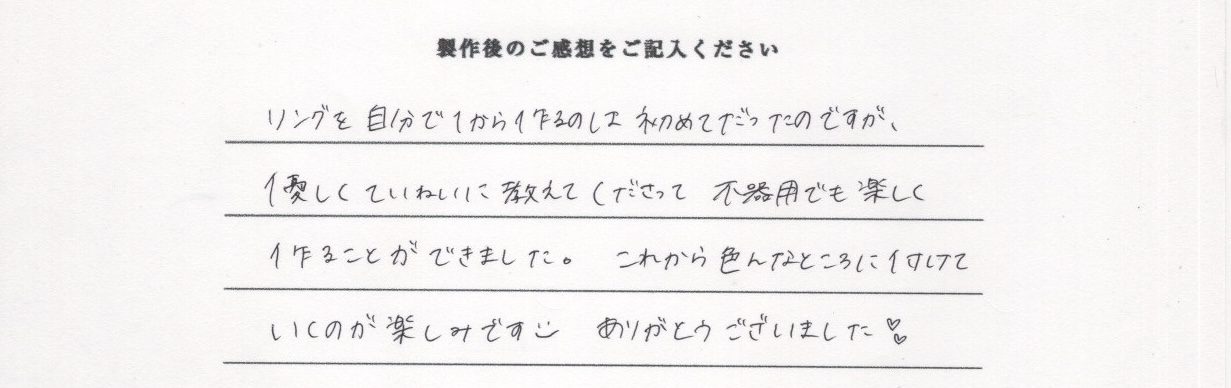 製作後のご感想をご記入ください
リングを自分で1から作るのは初めてだったのですが、
優しくていねいに教えてくださって 不器用でも楽しく
作ることができました。 これから色んなところに付けて
いくのが楽しみです☺ ありがとうございました♡♡